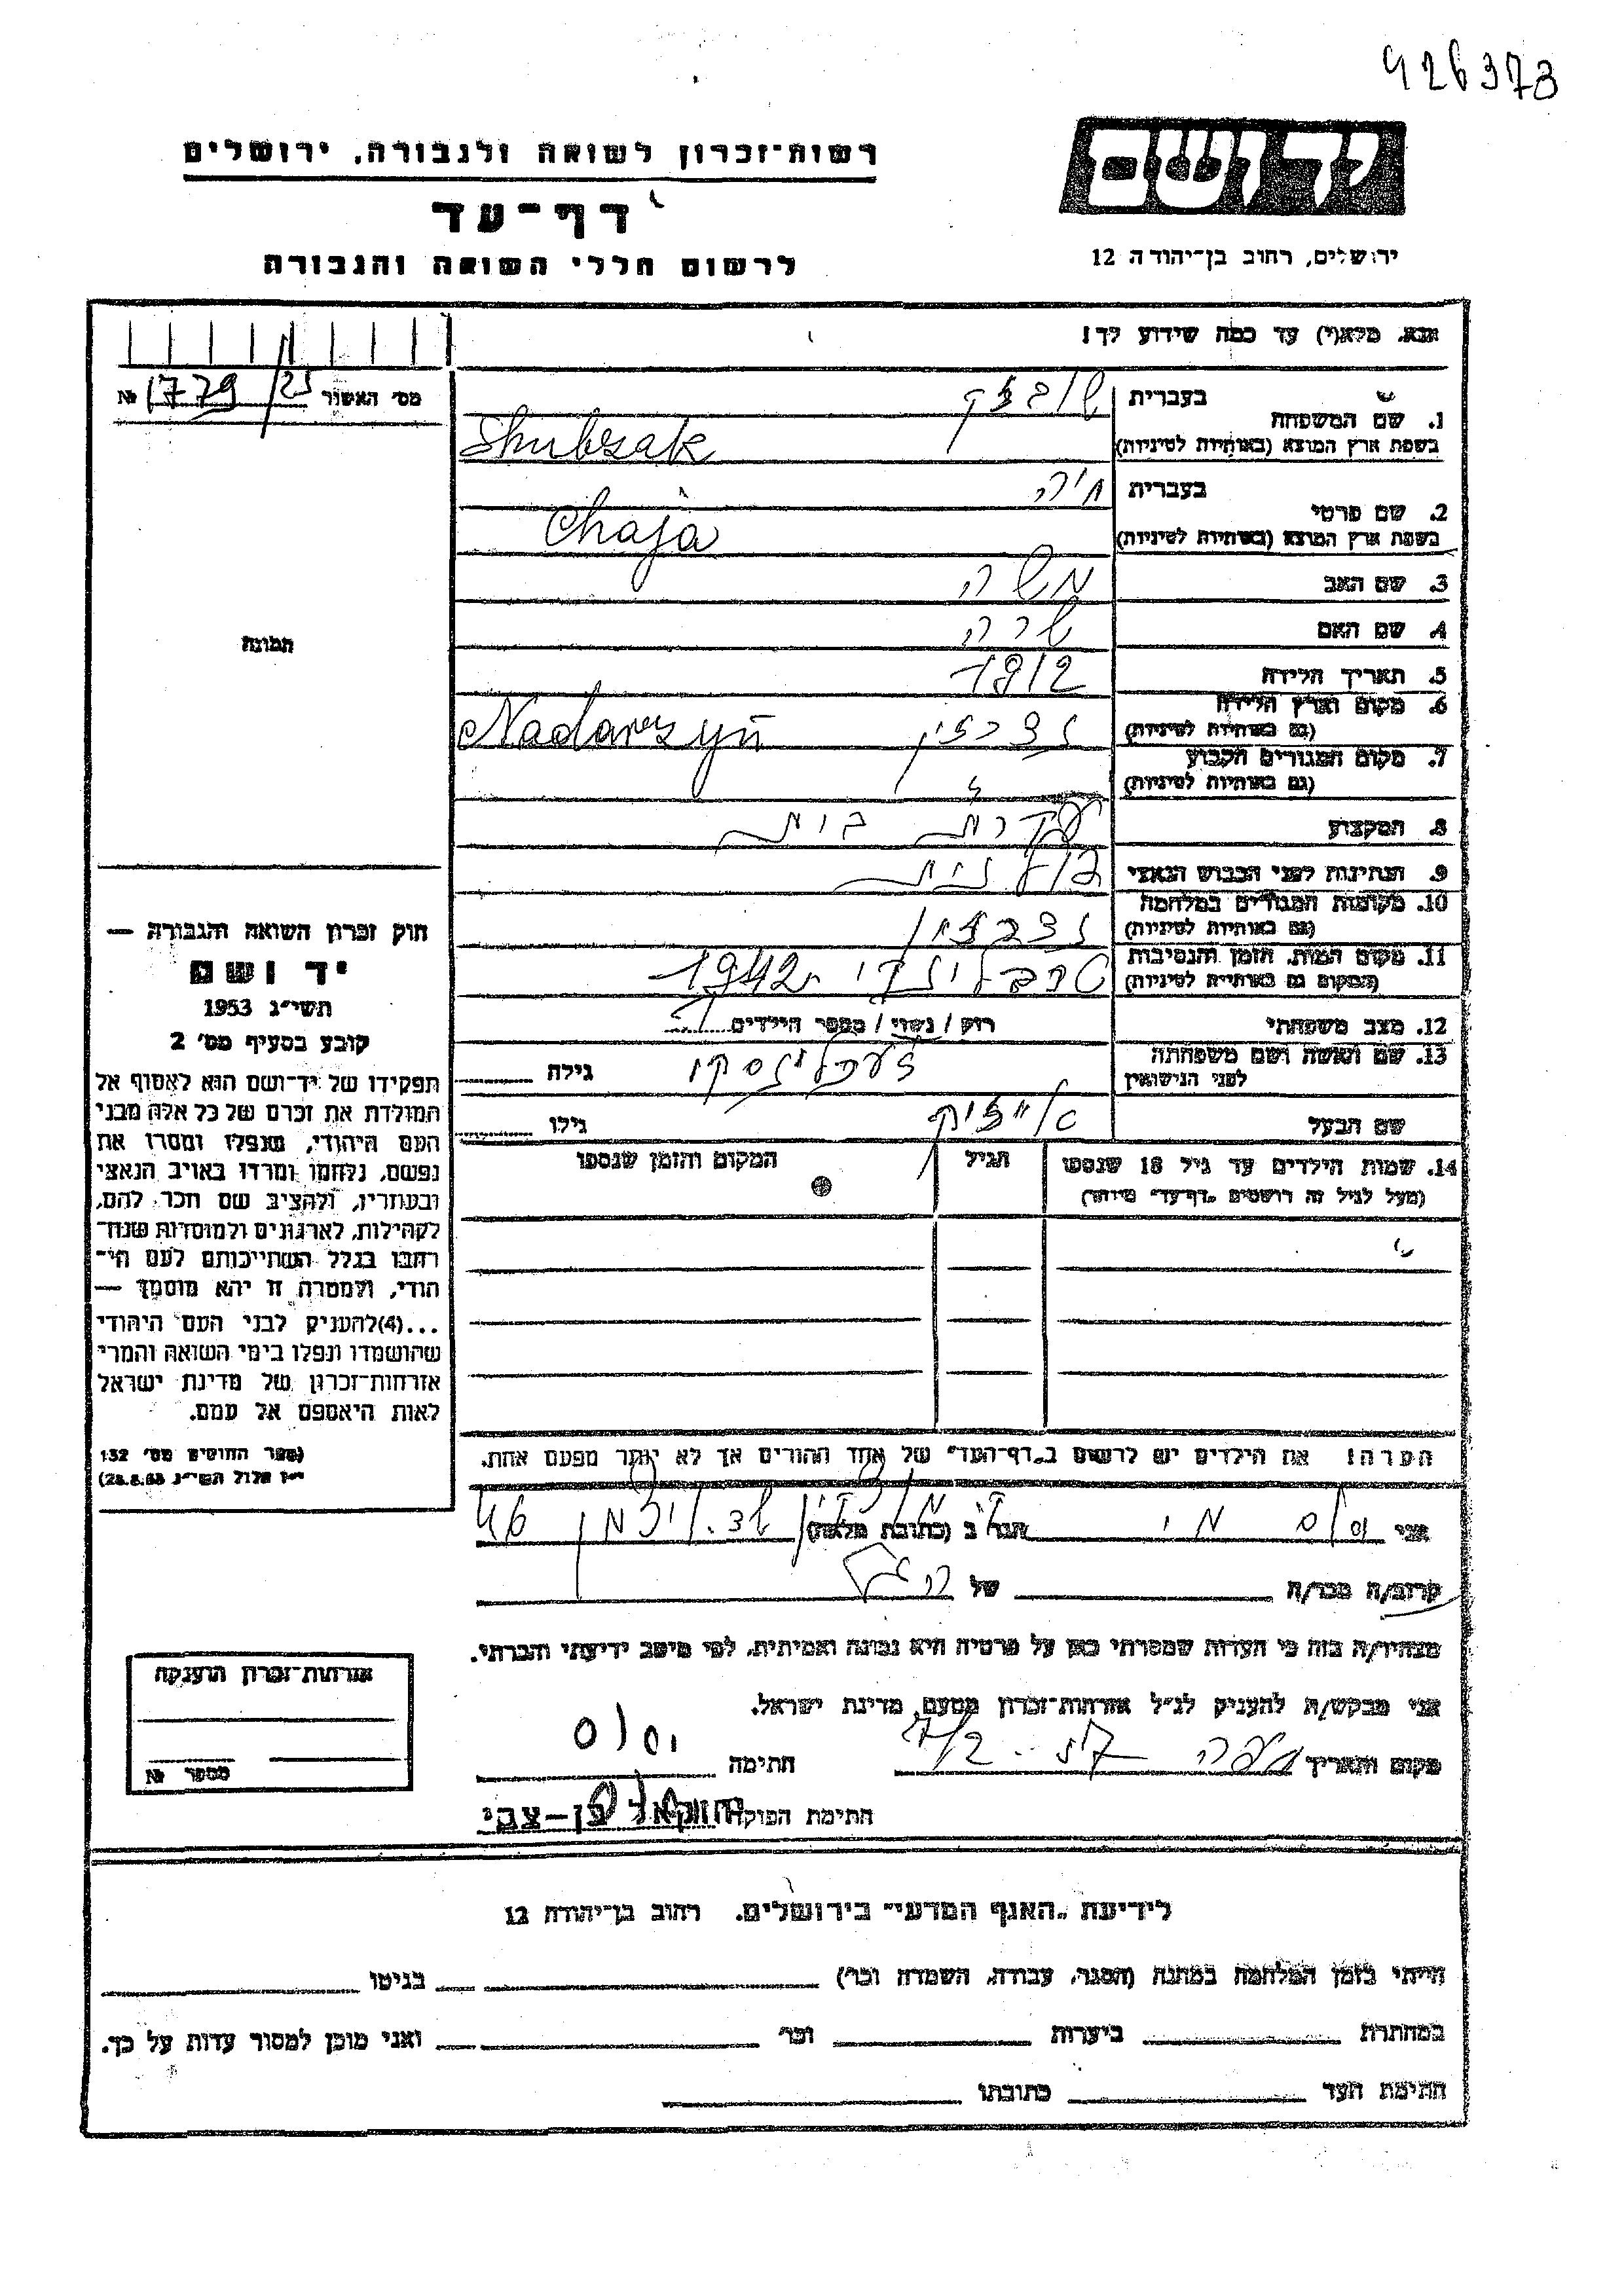 426373
רשות־זכרון לשואה ולגבורה, ירושלים
דף־עד
לרשום חללי השואה והגבורה
יד ושם
ירושלים, רחוב בן־יהודה 12
אנא, מלא(י) עד כמה שידוע לך!
מס' האשור 1779/25 №
1. שם המשפחה
בעברית שובזק
בשפת ארץ המוצא (באותיות לטיניות) Shubzak
2. שם פרטי
בעברית חיה
בשפת ארץ המוצא (באותיות לטיניות) Chaja
3. שם האב משה
4. שם האם שרה
5. תאריך הלידה 1912
6. מקום וארץ הלידה
(גם באותיות לטיניות) Nadarzyn
7. מקום המגורים הקבוע
(גם באותיות לטיניות)
8. המקצוע עקרת בית
9. הנתינות לפני הכבוש הנאצי פולנית
10. מקומות המגורים במלחמה
(גם באותיות לטיניות)
11. מקום המות, הזמן והנסיבות
(המקום גם באותיות לטיניות) טרבלינקי 1942
12. מצב משפחתי רוק / נשוי / מספר הילדים
13. שם האשה ושם משפחתה
לפני הנישואין גילה
שם הבעל גילו
14. שמות הילדים עד גיל 18 שנספו הגיל המקום והזמן שנספו
(מעל לגיל זה רושמים "דף־עד" מיוחד)
הערה! את הילדים יש לרשום ב"דף־העד" של אחד ההורים אך לא יותר מפעם אחת.
תמונה
חוק זכרון השואה והגבורה —
יד ושם
תשי"ג 1953
קובע בסעיף מס' 2
תפקידו של יד־ושם הוא לאסוף אל
המולדת את זכרם של כל אלה מבני
העם היהודי, שנפלו ומסרו את
נפשם, נלחמו ומרדו באויב הנאצי
ובעוזריו, ולהציב שם וזכר להם,
לקהילות, לארגונים ולמוסדות שנח־
רבו בגלל השתייכותם לעם הי־
הודי, ולמטרה זו יהא מוסמך —
...(4) להעניק לבני העם היהודי
שהושמדו ונפלו בימי השואה והמרי
אזרחות־זכרון של מדינת ישראל
לאות היאספם אל עמם.
(ספר החוקים מס' 132
י"ז אלול תשי"ג 28.8.53)
אני הגר ב (כתובת מלאה) 46
קרוב/ה מכר/ה של
מצהיר/ה בזה כי העדות שמסרתי כאן על פרטיה היא נכונה ואמיתית, לפי מיטב ידיעתי והכרתי.
אני מבקש/ת להעניק לנ"ל אזרחות־זכרון מטעם מדינת ישראל.
מקום ותאריך חיפה חתימה
חתימת הפוקד יחזקאל בן־צבי
אזרחות־זכרון הוענקה
מספר №
לידיעת "האגף המדעי" בירושלים, רחוב בן־יהודה 12
הייתי בזמן המלחמה במחנה (הסגר, עבודה, השמדה וכר') בגיטו
במחתרת ביערות וכר' ואני מוכן למסור עדות על כך.
חתימת העד כתובתו